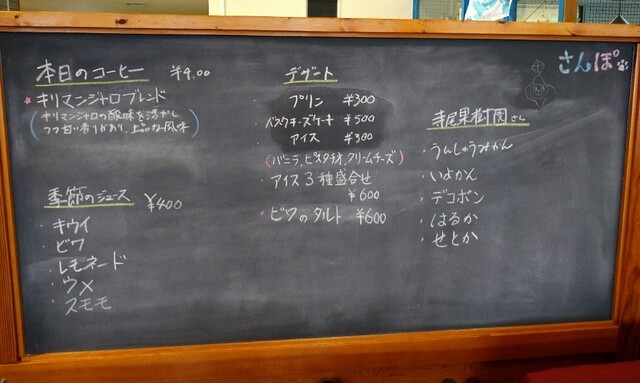 本日のコーヒー ¥400
キリマンジャロブレンド
(キリマンジャロの酸味を活かし
つつ甘い香りがあり、上品な風味)
季節のジュース ¥400
・キウイ
・ビワ
・レモネード
・ウメ
・スモモ
デザート
・プリン ¥300
・バスクチーズケーキ ¥500
・アイス ¥300
(バニラ、ピスタチオ、クリームチーズ)
・アイス3種盛合せ
¥600
・ビワのタルト ¥600
さんぽ
寺尾果樹園さん
・うんしゅうみかん
・いよかん
・デコポン
・はるか
・せとか